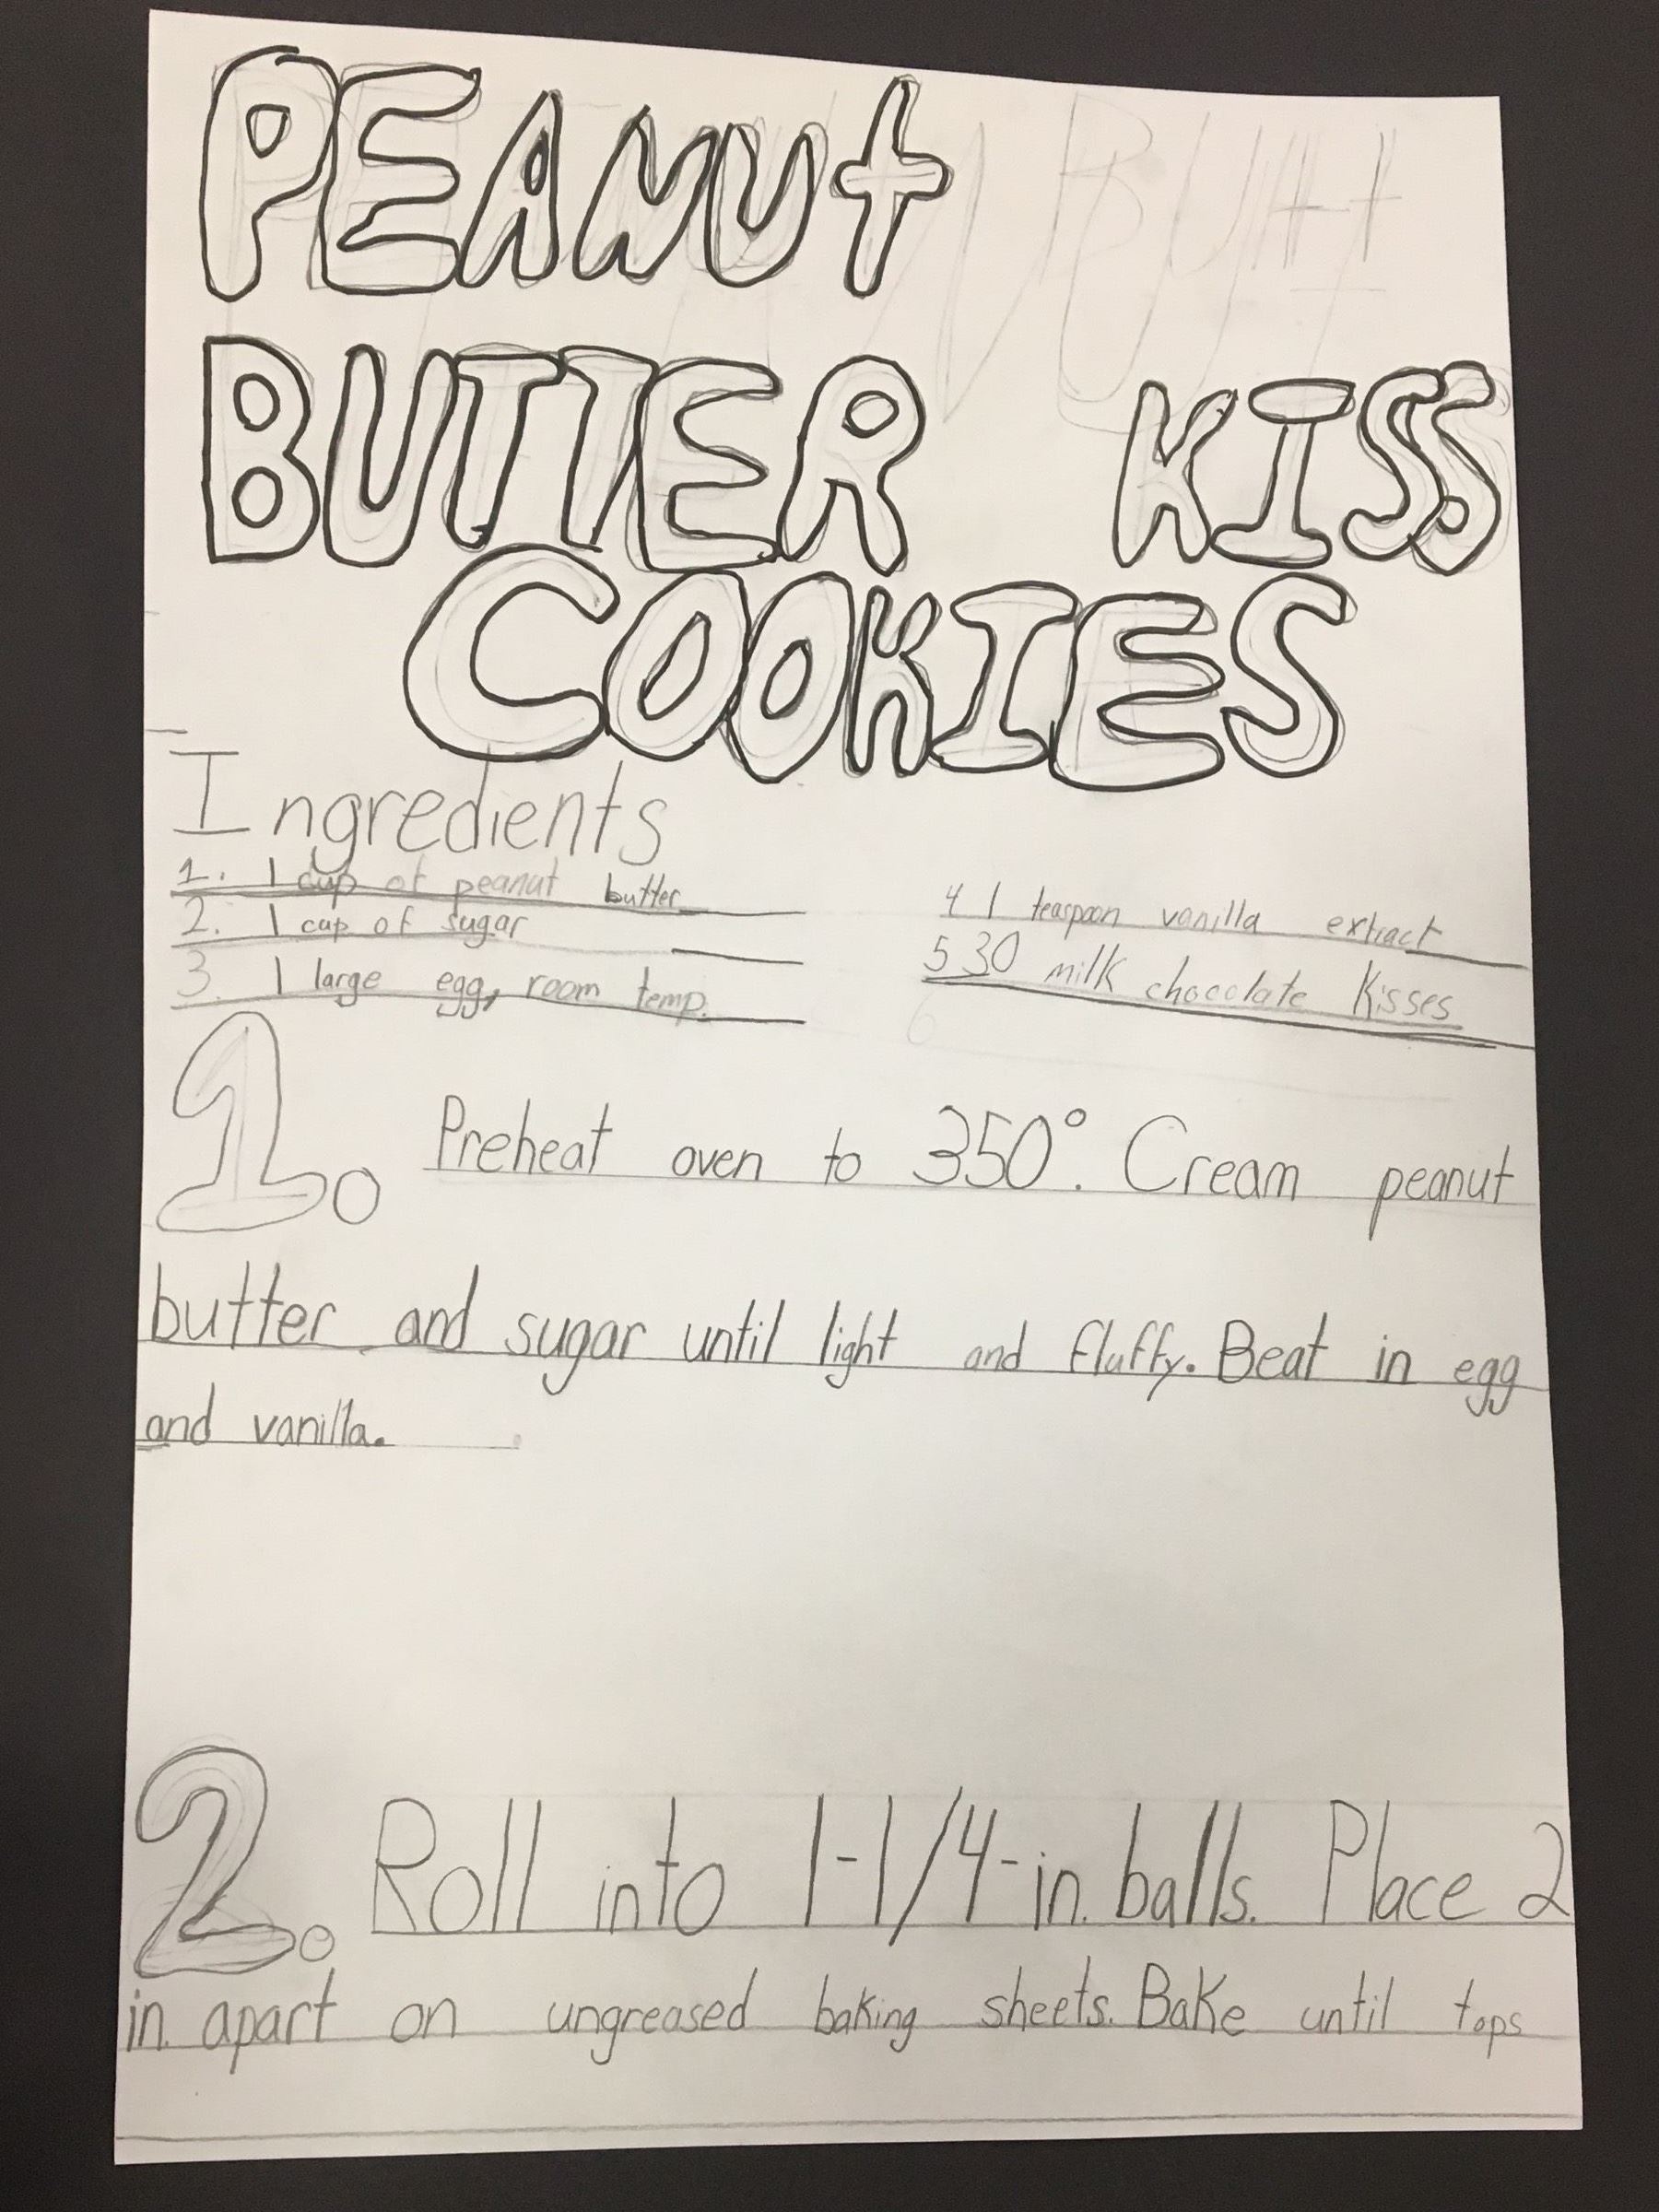 PEANUt
BUTTER KISS
COOKIES
Ingredients
1. 1 cup of peanut butter
2. 1 cup of sugar
3. 1 large egg, room temp.
4 1 teaspoon vanilla extract
5 30 milk chocolate Kisses
6
1. Preheat oven to 350°. Cream peanut
butter and sugar until light and fluffy. Beat in egg
and vanilla.
2. Roll into 1-1/4-in. balls. Place 2
in. apart on ungreased baking sheets. Bake until tops